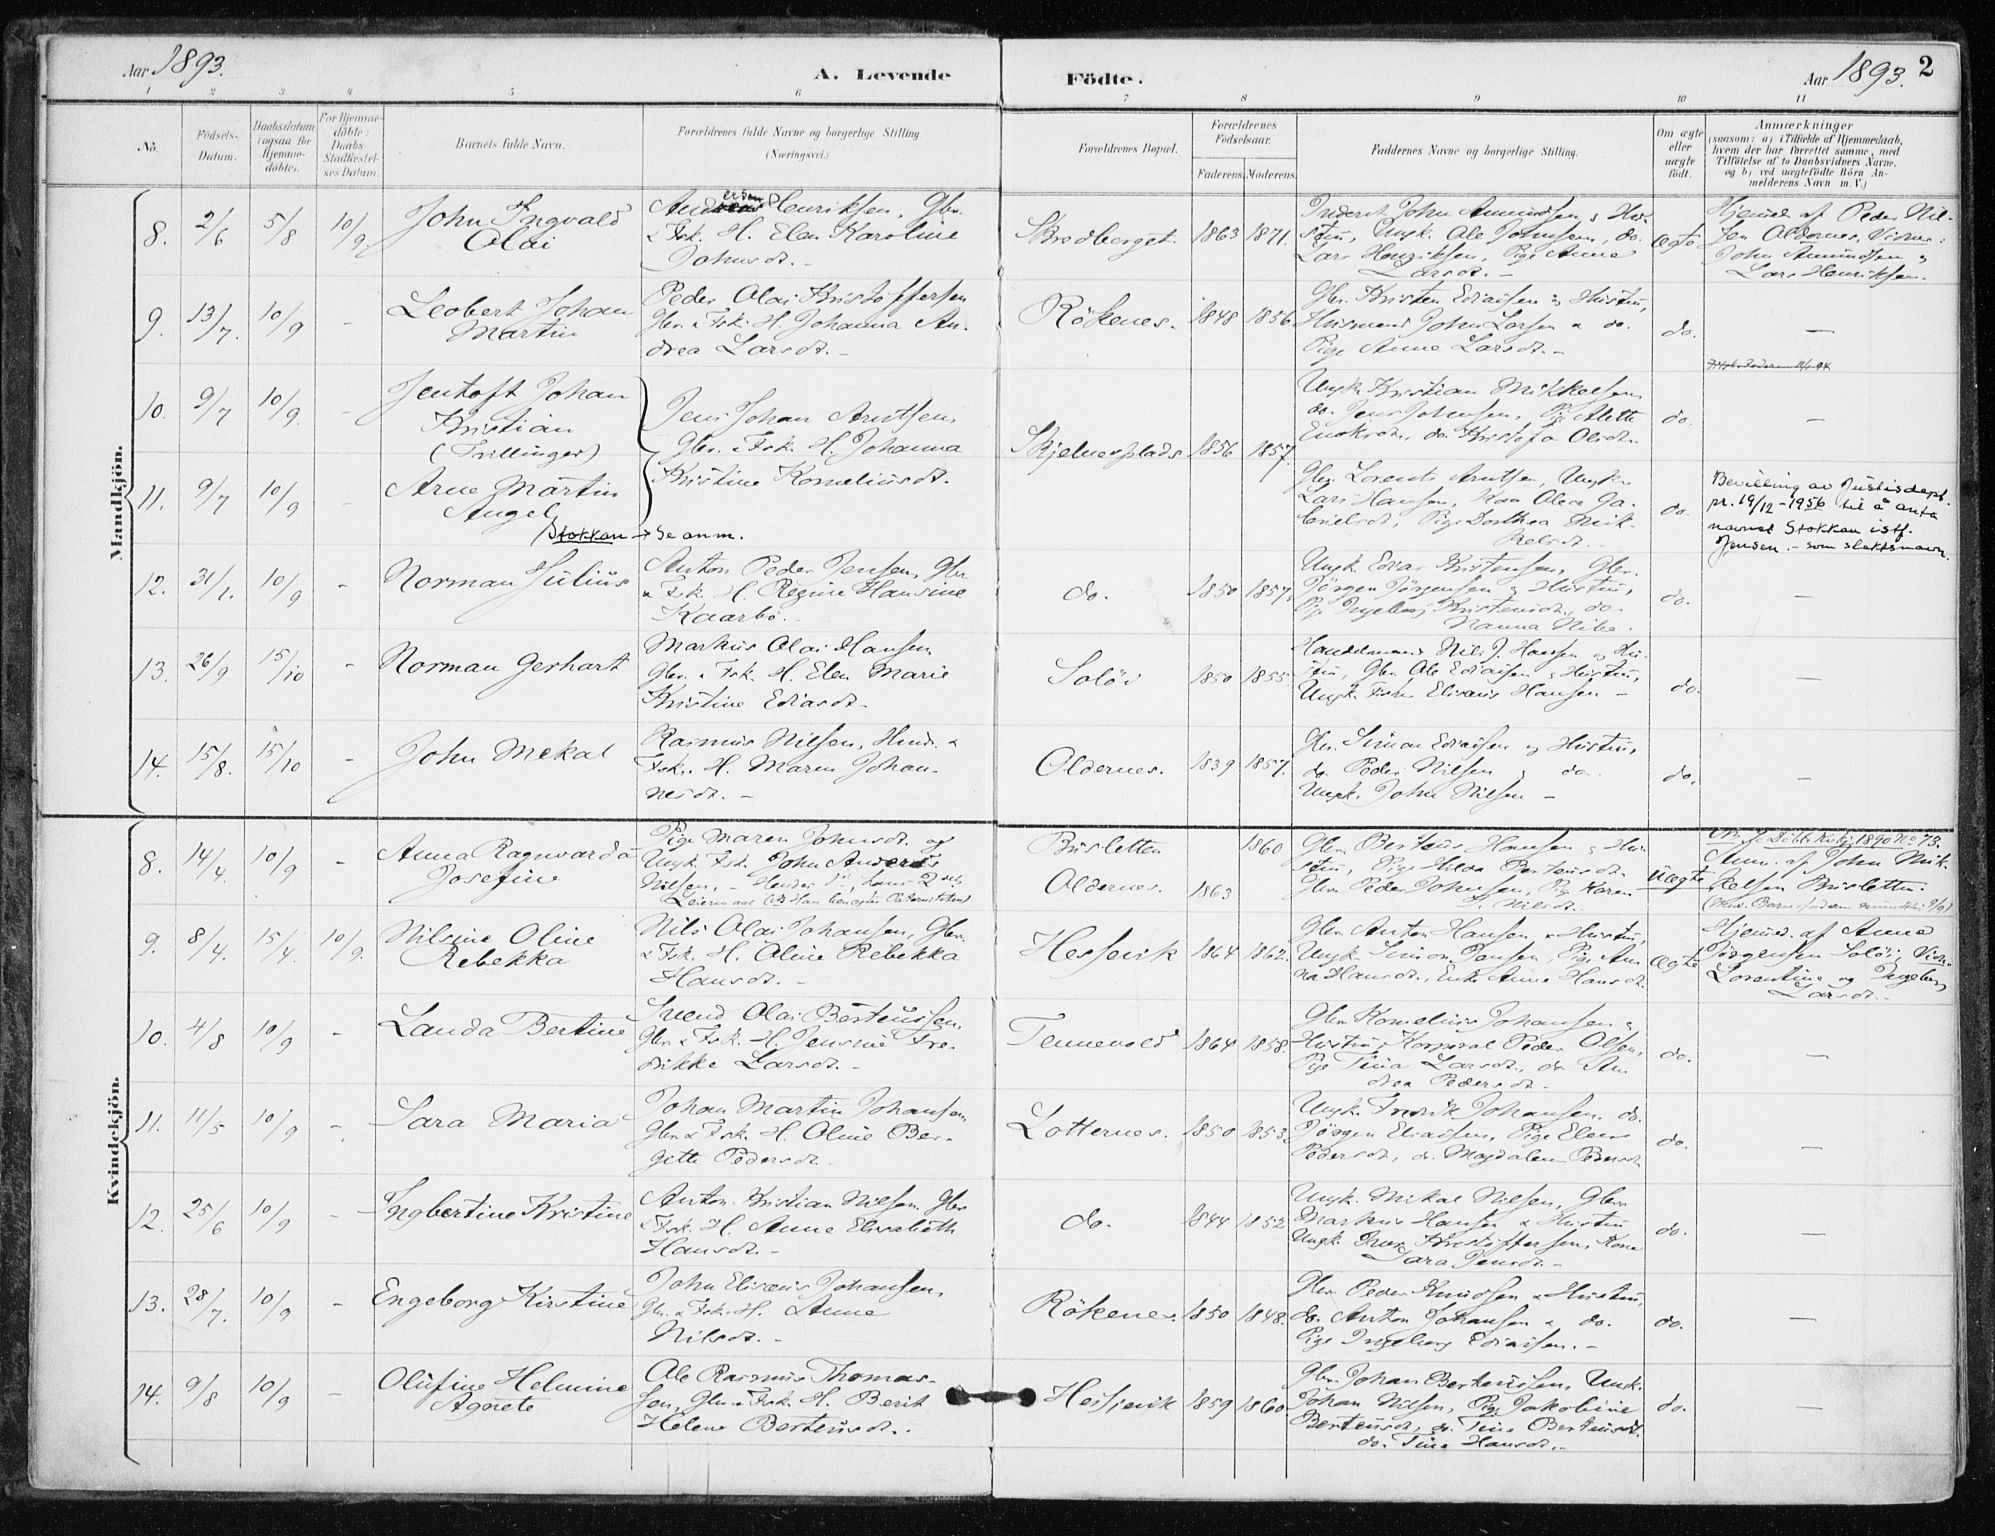 Aar 1893. A. Levende Födte. Aar 1893. 2
1 2 3 4 5 6 7 8 9 10 11
No. Födsels-Datum. Daabsdatum (ogsaa for Hjemmedöbte). For Hjemmedöbte: Daabs-Stadfæstelses Datum. Barnets fulde Navn. Forældrenes fulde Navne og borgerlige Stilling. (Næringsvei.) Forældrenes Bopæl. Forældrenes Födselsaar. Faderens. Moderens. Faddernes Navne og borgerlige Stilling. Om ægte eller uægte födt. Anmærkninger
(saasom: a) i Tilfælde af Hjemmedaab, hvem der har forrettet samme, med Tilföielse af to Daabsvidners Navne, og b) ved uægtefödte Börn Anmelderens Navn m. V.)
Mandkjön.
8. 2/6 5/8 10/9. John Ingvald
Olai
Andersen Henriksen, Gbr.
& Fsk. H. Elen Karoline
Johnsdt. -
Bredberget. 1863 1871.
John Amundsen & Hu-
stru, Ungk. Ole Johnsen, do.
Lars Henriksen, Pige Anne
Larsdt. -
ægte
Hjemd. af Peder Nil-
sen Oldernes, Vidner:
John Amundsen &
Lars Henriksen.
9. 13/7. 10/9 - Leobert Johan
Martin
Peder Olai Kristoffersen
Gbr. & Fsk. H. Johanna An-
drea Larsdt. -
Rökenes. 1848 1856
Gbr. Kristen Ediassen og Hustru,
Husmand John Larsen & do.
Pige Anne Larsdt. -
do. -
10. 9/7 10/9. - Jentoft Johan
Kristian
(Tvillinger)
Jens Johan Arntsen,
Gbr. & Fsk. H. Johanna
Kristine Korneliusdt.
Skjelnesplads 1856 1857.
Ungk. Kristian Mikkelsen,
do. Jens Johnsen, Pige Alette
Enoksdt., do. Kristofa Olsdt.
do. -
11. 9/7 10/9 - Arne Martin
Angel
Stokkan → Se anm.
Gbr. Lorents Arntsen, Ungk.
Lars Hansen, Kone Olava Ga-
brielsdt, Pige Dorthea Mik-
kelsdt. -
do.
Bevilling av Justisdept
pr. 19/12-1956 til å anta
navnet Stokkan istf.
Jensen. - som slektsnavn.
12. 31/1. 10/9 - Norman Julius
Anton Peder Jensen, Gbr.
& Fsk. H. Regine Hansine
Kaarbö. -
do. 1850 1857.
Ungk. Edias Kristensen, Gbr.
Jörgen Jörgensen & Hustru,
Pige Ingeborg Kristensdt., do.
Nanna Nibe.
do. -
13. 26/9 15/10 - Norman Gerhart
Markus Olai Hansen,
Gbr. & Fsk. H. Elen Marie
Kristine Ediasdt. -
Solöi 1850 1855.
Handelsmand Nils J. Hansen og Hu-
stru, Gbr. Ole Ediassen & Hustru,
Ungk. Fisker Elisæus Hansen -
do. -
14. 15/8. 15/10 - John Mekal
Rasmus Nilsen, Husm. &
Fsk. H. Maren Johan-
nesdt. -
Oldernes. 1839 1857.
Gbr. Simon Ediassen og Hustru,
do. Peder Nilsen & do.
Ungk. John Nilsen -
do. -
Kvindekjön.
8. 14/4. 10/9 - Anna Ragnvarda
Josefine
Pige Maren Johnsdt. og
Ungk. Fsk. John Anderas
Nilsen. -
Busletten 1860
Oldernes. 1863
Gbr. Berteus Hansen & Hu-
stru, Pige Hilda Berteusdt.
Gbr. Peder Johnsen, Pige Karen
Nilsdt. -
Uægte
1890 No 73.
Anm. af John Mik-
kelsen Busletten.
9. 8/4. 15/4. 10/9. Nilsine Oline
Rebekka
Nils Olai Johansen, Gbr.
& Fsk. H. Oline Rebekka
Hansdt. -
Hessevik 1864 1862.
Gbr. Anton Hansen & Hustru,
Ungk. Simon Jansen, Pige An-
na Hansdt., Enke Anne Hansdt.
ægte
Hjemd. af Anne
Jörgensen Solöi, Vidn.
Lorentine og Ingeborg
Larsdt. -
10. 4/8 10/9 - Landa Bertine
Svend Olai Berteussen,
Gbr. & Fsk. H. Jensine Fre-
drikke Larsdt. -
Tennevold 1864 1858.
Gbr. Kornelius Johansen &
Hustru, Korporal Peder Olsen,
Pige Tina Larsdt., do. An-
drea Pedersdt. -
do. -
11. 11/5 10/9 - Sara Maria
Johan Martin Johansen,
Gbr. & Fsk. H. Oline Ber-
gitte Pedersdt.
Lotternes. 1850 1853.
Ungk. Fredrik Johansen, do.
Jörgen Eliassen, Pige Elen
Pedersdt, do. Magdalena Pedersdt
do. -
12. 25/6 10/9 - Ingbertine Kristine
Anton Kristian Nilsen, Gbr.
& Fsk. H. Anne Elisabeth
Hansdt. -
do. 1844 1852
Ungk. Mikal Nilsen, Gbr.
Markus Hansen & Hustru
Ungk. Kristoffersen, Kone
Sara Jensdt. -
do. -
13. 28/7. 10/9 - Engeborg Kirstine
John Elisæus Johansen,
Gbr. & Fsk. H. Anne
Nilsdt. -
Rökenes. 1850 1848.
Gbr. Peder Knudsen & Hustru,
do. Anton Johansen & do.
Pige Ingeborg Ediassen. -
do. -
14. 9/8 10/9 - Olufine Helmine
Agnete
Ole Rasmus Thomas-
sen, Gbr. & Fsk. H. Berit
Helene Berteusdt.
Hessevik 1859 1860
Gbr. Johan Berteussen, Ungk.
Johan Nilsen, Pige Jakobine
Berteusdt, do. Tine Berteusdt.
do. Tine Hansdt. -
do. -